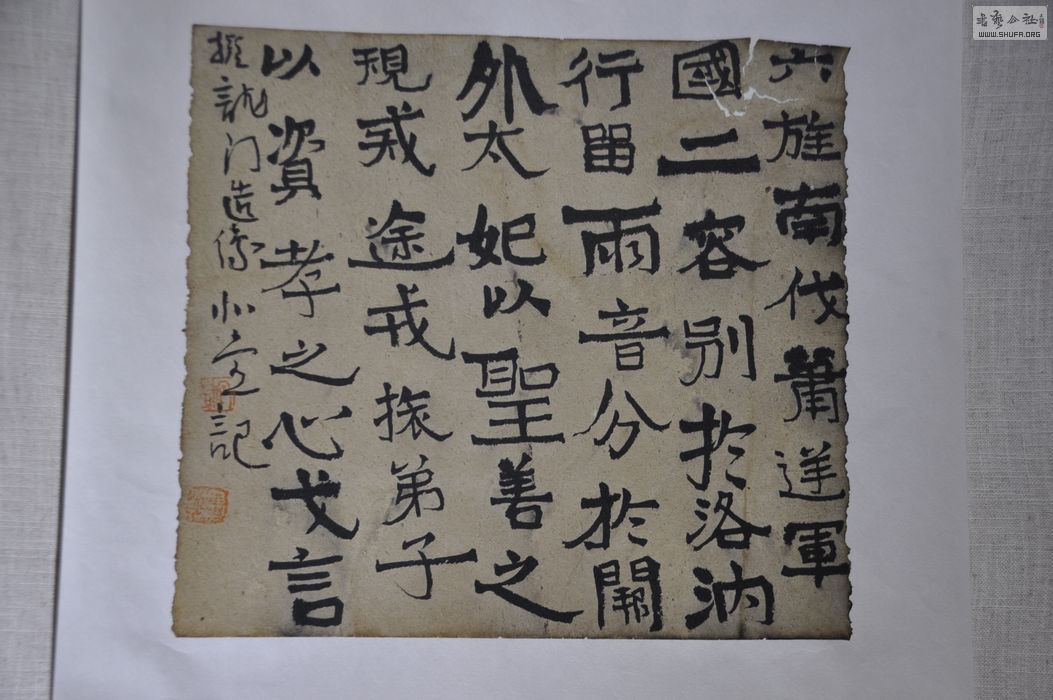 六旌南伐蕭逆軍
國二容別於洛汭
行留兩音分於闕
外太妃以聖善之
規戒途戒掁弟子
以資孝之心戈言
擬龍门造像 小 記
書藝公社
WWW.SHUFA.ORG